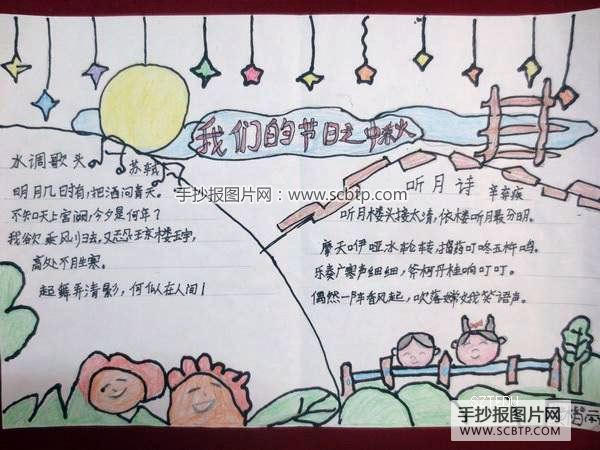 我们的节日之中秋
手抄报图片网:www.scbtp.com
水调歌头
苏轼
明月几时有,把酒问青天。
不知天上宫阙,今夕是何年?
我欲乘风归去,又恐琼楼玉宇,
高处不胜寒。
起舞弄清影,何似在人间!
听月诗
辛弃疾
听月楼头接太清,依楼听月最分明。
摩天咿哑冰轮转,捣药叮咚玉杵鸣。
乐奏广寒声细细,斧柯丹桂响叮叮。
偶然一阵香风起,吹落嫦娥笑语声。
手抄报图片网
WWW.SCBTP.COM